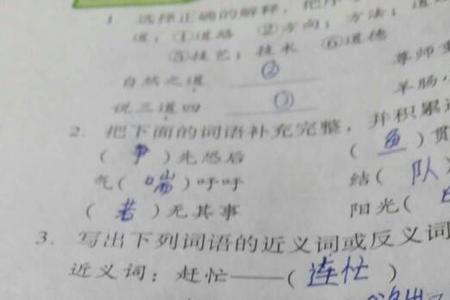 1. 选择正确的解释，把序
道：①道路 ②方向；方法；道
⑤技艺；技术 ⑥道德
自然之道 ② 尊师重
说三道四 ③ 羊肠小
2. 把下面的词语补充完整，并积累
（争）先恐后 （鱼）贯
气（喘）吁吁 结（队
（若）无其事 阳光（
3. 写出下列词语的近义词或反义词
近义词：赶忙——（连忙）